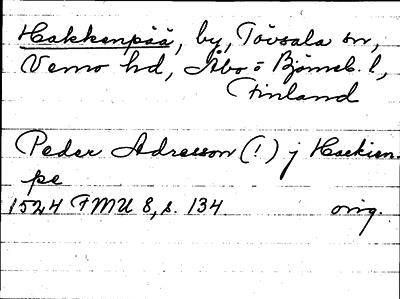 Hakkenpää, by, Tövsala sn,
Vemo hd, Åbo= Björneb. l,
Finland
Peder Adresson (!) j Haekien-
pe
1524 FMU 8, s. 134 orig.